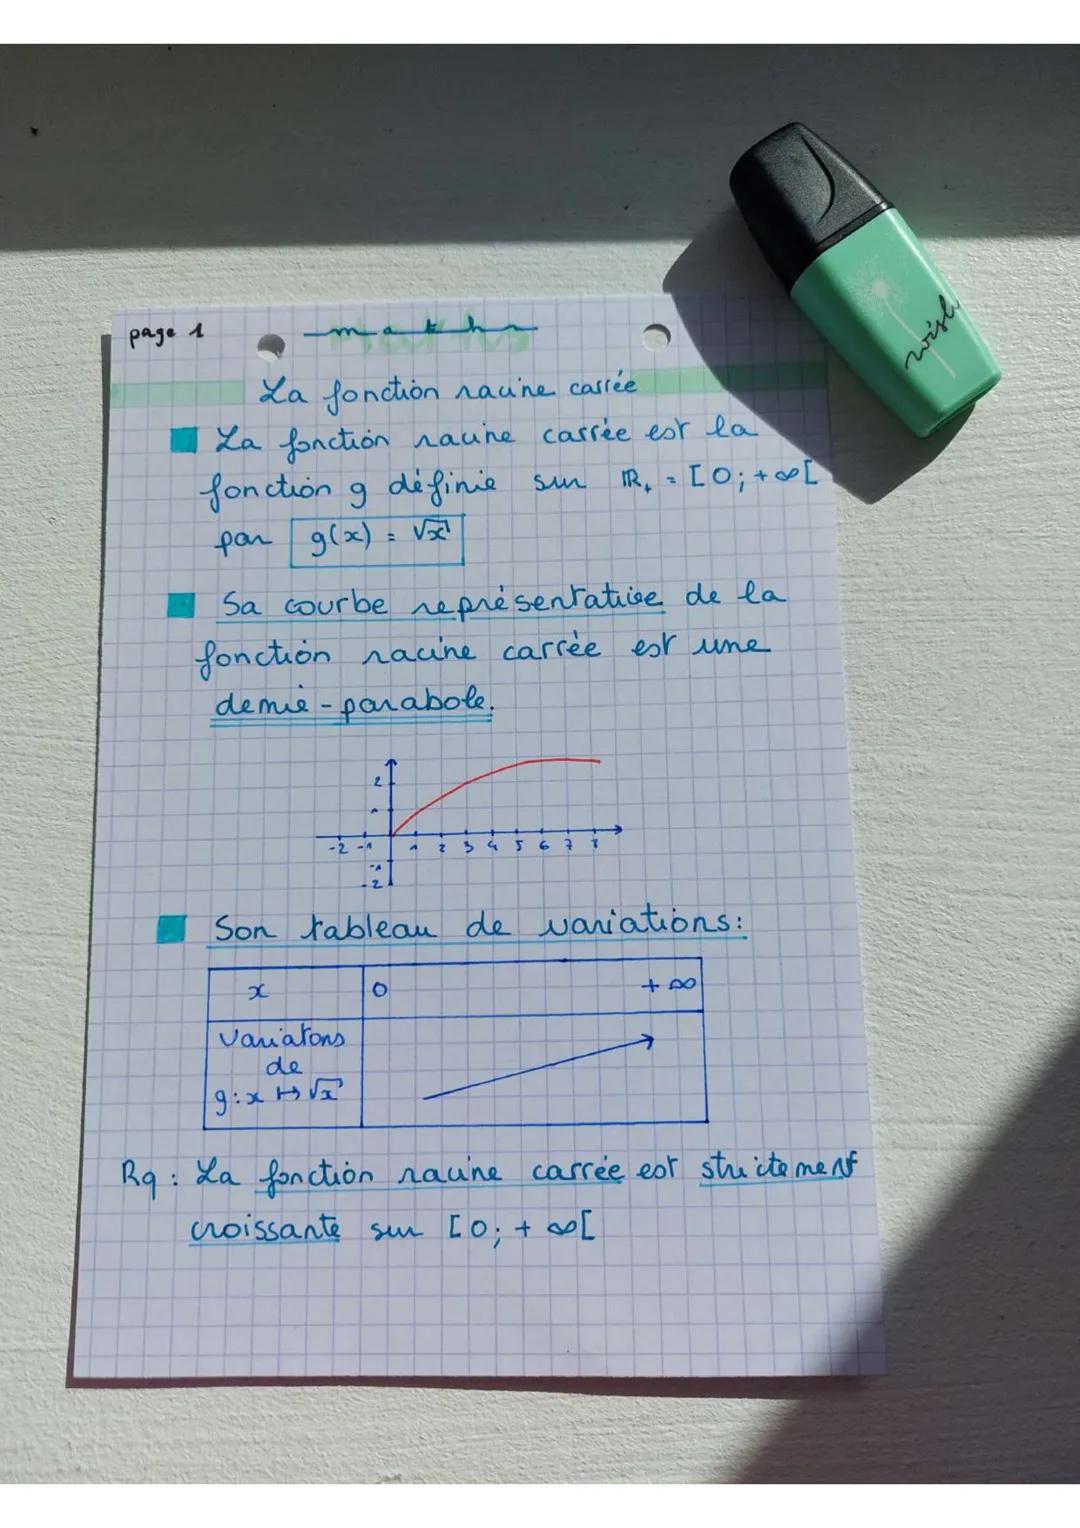 page 1
maths
La fonction racine carrée
La fonction racine carrée est la
fonction g définie sur ℝ₊ = [0; +∞[
par g(x) = √x
Sa courbe représentative de la
fonction racine carrée est une
demie-parabole.
2
1
-2 -1 1 2 3 4 5 6 7 8
-1
-2
Son tableau de variations:
x 0 +∞
Variatons
de
g: x ↦ √x
Rq : La fonction racine carrée est strictement
croissante sur [0; +∞[
wish